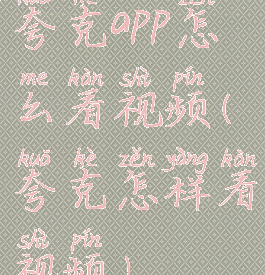 kuā kè zěn
夸克app怎
me kàn shì pín
么看视频(
kuā kè zěn yàng kàn
夸克怎样看
shì pín
视频)